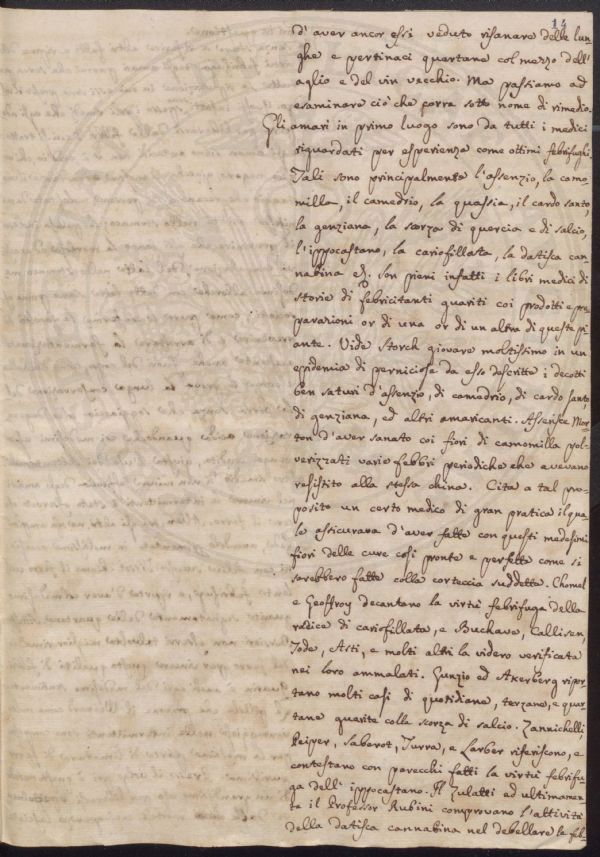 14
d'aver ancor essi veduto risanare delle lun-
ghe e pertinaci quartane col mezzo dell'
aglio e del vin vecchio. Ma passiamo ad
esaminare ciò che corra sotto nome di rimedio.
Gli amari in primo luogo sono da tutti i medici
riguardati per esperienza come ottimi febrifughi.
Tali sono principalmente l'assenzio, la camo-
milla, il camedrio, la quassia, il cardo santo,
la genziana, la scorza di quercia e di salcio,
l'ippocastano, la cariofillata, la datisca can-
nabina &. Son pieni infatti i libri medici di
storie di febricitanti guariti coi prodotti e pre-
parazioni or di una or di un altra di queste pi-
ante. Vide Storck giovare moltissimo in un
epidemia di perniciose da esso descritte i decotti
ben saturi d'assenzio, di camedrio, di cardo santo,
di genziana, ed altri amaricanti. Asserisce Mor-
ton d'aver sanato coi fiori di camomilla pol-
verizzati varie febbri periodiche che avevano
resistito alla stessa china. Cita a tal pro-
posito un certo medico di gran pratica il qua-
le assicurava d'aver fatte con questi medesimi
fiori delle cure così pronte e perfette come si
sarebbero fatte colla corteccia suddetta. Chomel
e Geoffroy decantano la virtù febrifuga della
radice di cariofillata, e Buchave, Callisen,
Tode, Asti, e molti altri la videro verificata
nei loro ammalati. Gunzio ed Akerberg ripor-
tano molti casi di quotidiane, terzane, e quar-
tane guarite colla scorza di salcio. Zannichelli,
Peiper, Sabarot, Turra, e Larber riferiscono, e
contestano con parecchi fatti la virtù febrifu-
ga dell'ippocastano. Il Zulatti ed ultimamen-
te il Professor Rubini comprovano l'attività
della datisca cannabina nel debellare le feb-